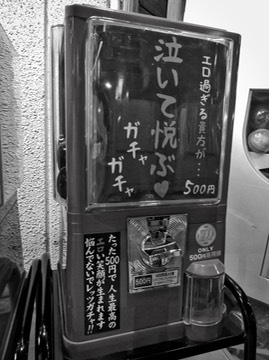 エロ過ぎる貴方が…
泣いて悦ぶ♥
ガチャ
ガチャ
500円
たった500円で人生最高の
エロい笑顔が生まれます
悩んでないでレッツガチャ!!
500円
ONLY